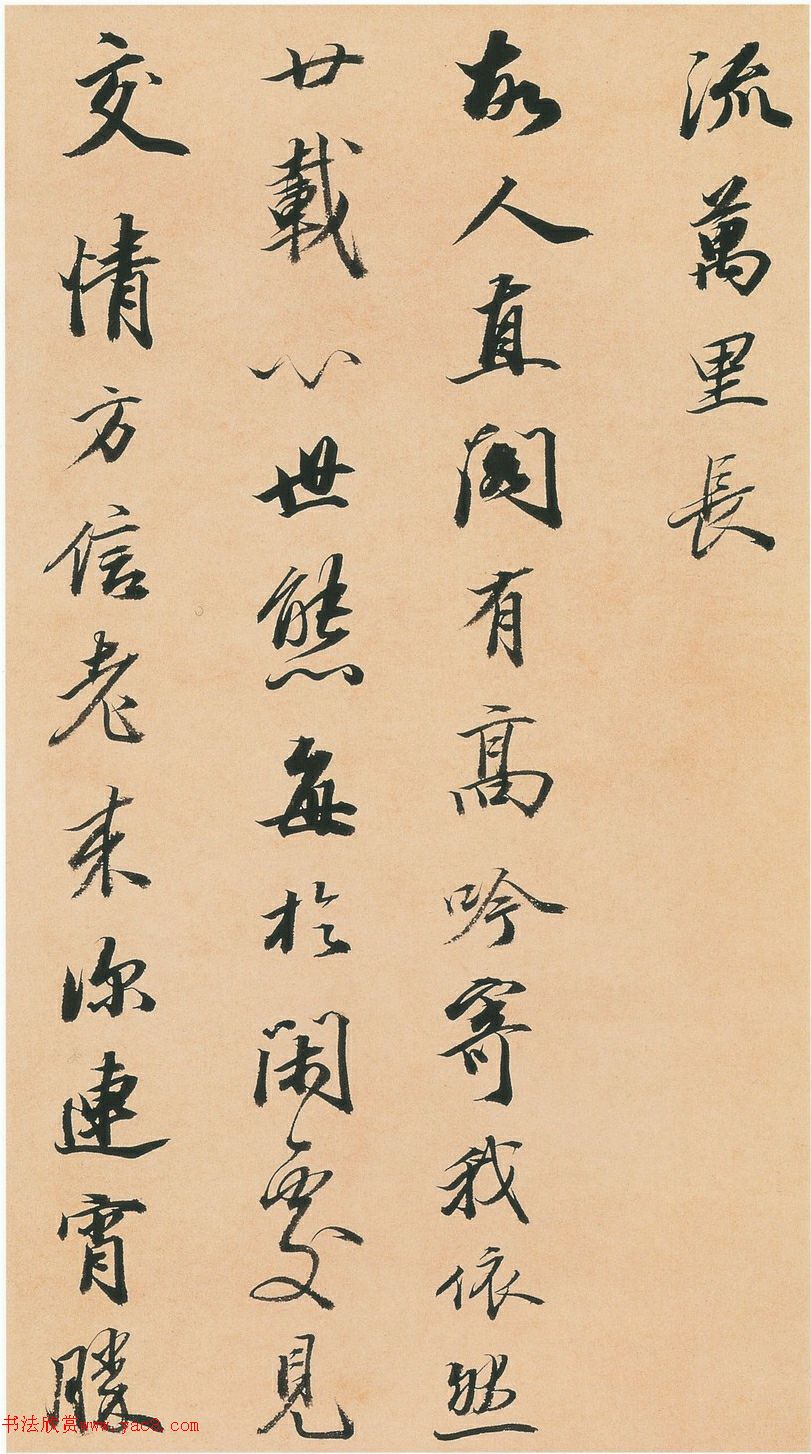 流萬里長
故人直閣有高吟寄我依然
廿載心世態每於閑處見
交情方信老來深連宵勝
书法欣赏www.yac8.com